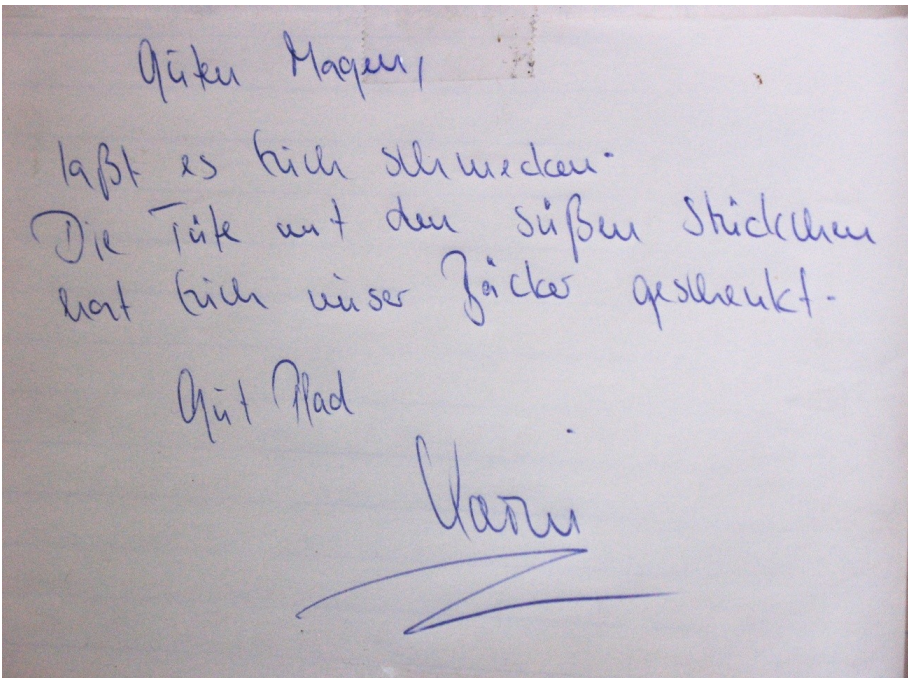 Guten Morgen,
laßt es Euch schmecken.
Die Tüte mit den süßen Stückchen
hat Euch unser Bäcker geschenkt.
Gut Pfad
Karin